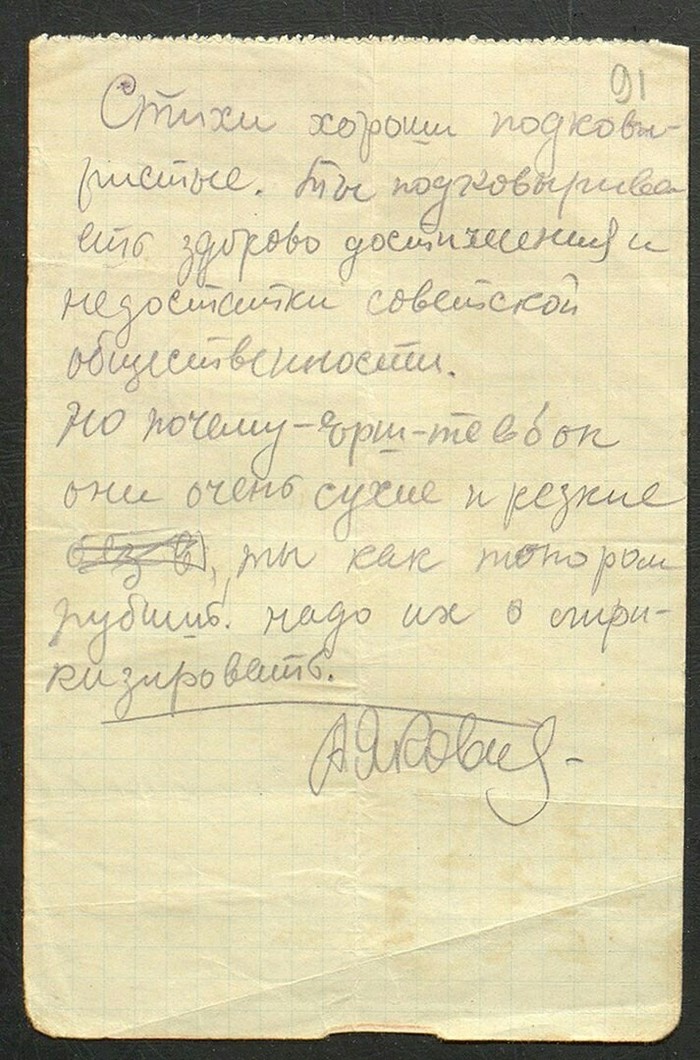 91
Стихи хороши подковы-
ристые. Ты подковырива
ешь здорово достижения и
недостатки советской
общественности.
Но почему-
они очень сухие и резкие
без в, ты как топором
рубишь. надо их о лири-
кизировать.
А Яковлев